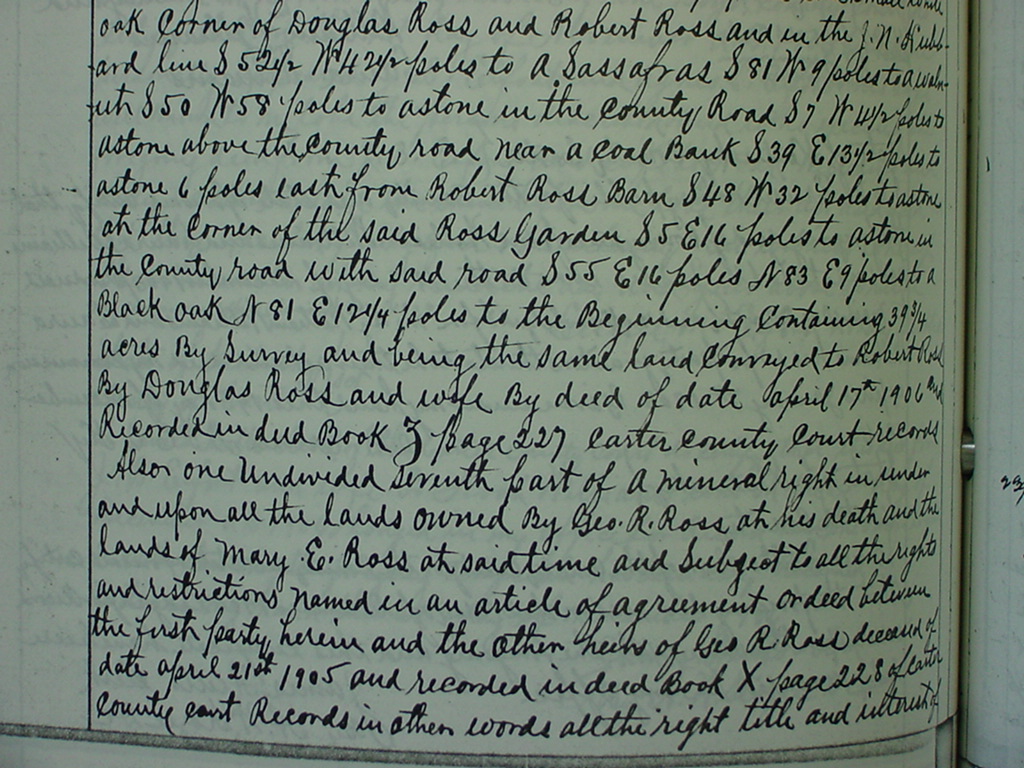 oak Corner of Douglas Ross and Robert Ross and in the J. N. Hubb-
ard line S 52½ W 42½ poles to a Sassafras S 81 W 9 poles to a waln-
ut S 50 W 58 poles to astone in the County Road S 7 W 4½ poles to
astone above the County road near a Coal Bank S 39 E 13½ poles to
astone 6 poles east from Robert Ross Barn S 48 W 32 poles to astone
at the Corner of the said Ross Garden S 5 E 16 poles to astone in
the County road with said road S 55 E 16 poles N 83 E 9 poles to a
Black oak N 81 E 12¼ poles to the Beginning Containing 39¾
acres By Survey and being the same land Conveyed to Robert Ross
By Douglas Ross and wife By deed of date april 17th 1906 and
Recorded in deed Book Z page 227 Carter County Court records
Also one Undivided Seventh part of a mineral right in under
and upon all the lands owned By Geo. R. Ross at his death and the
lands of Mary E. Ross at said time and Subject to all the rights
and restrictions named in an article of agreement or deed between
the first party herein and the other heirs of Geo R. Ross deceased of
date april 21st 1905 and recorded in deed Book X page 228 of Carter
County Court Records in other words all the right title and interest of